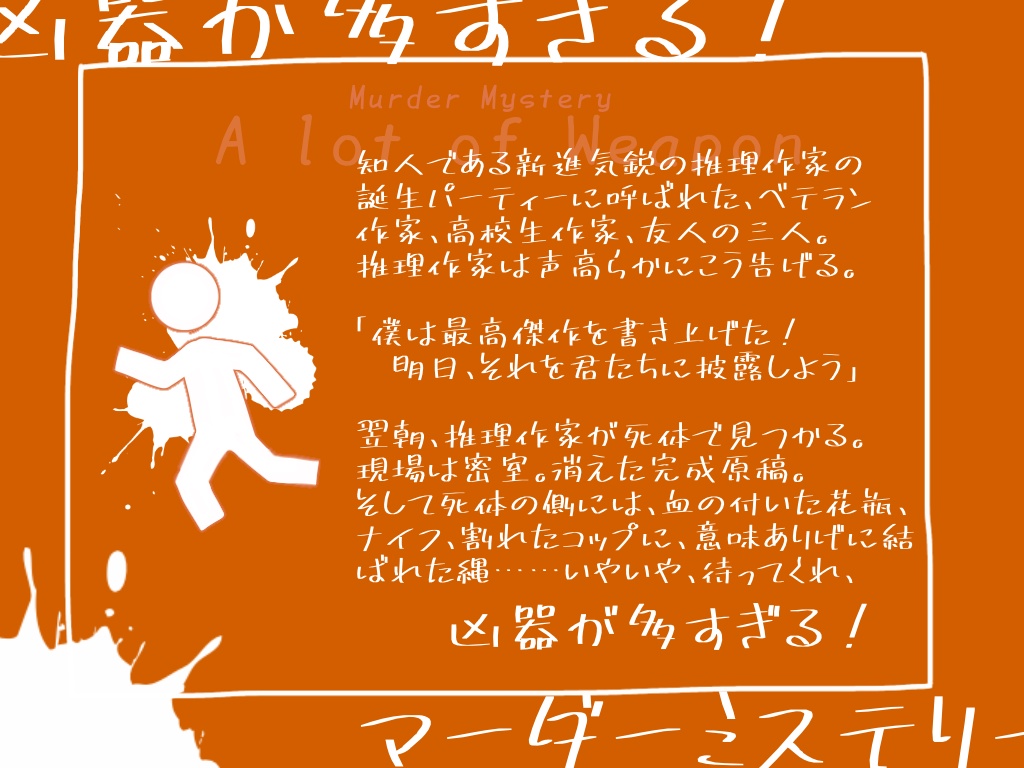 凶器が多すぎる！
Murder Mystery
A lot of Weapon
知人である新進気鋭の推理作家の
誕生パーティーに呼ばれた、ベテラン
作家、高校生作家、友人の三人。
推理作家は声高らかにこう告げる。
「僕は最高傑作を書き上げた！
明日、それを君たちに披露しよう」
翌朝、推理作家が死体で見つかる。
現場は密室。消えた完成原稿。
そして死体の側には、血の付いた花瓶、
ナイフ、割れたコップに、意味ありげに結
ばれた縄……いやいや、待ってくれ、
凶器が多すぎる！
マーダーミステリー